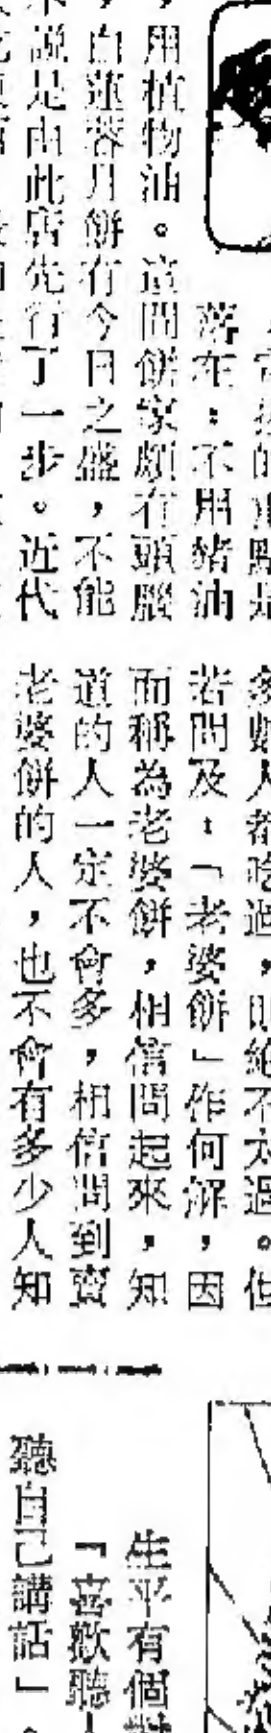 落在：不用豬油
，用植物油。這間餅家頗有頭腦
，白蓮蓉月餅有今日之盛，不能
說是由此店先行了一步。近代
多數人都吃過，則絕不太過。但
若問及：「老婆餅」作何解，因
而稱為老婆餅，相信問起來，知
道的人一定不會多，相信問到賣
老婆餅的人，也不會有多少人知
生平有個
「喜歡聽
聽自己講話」。